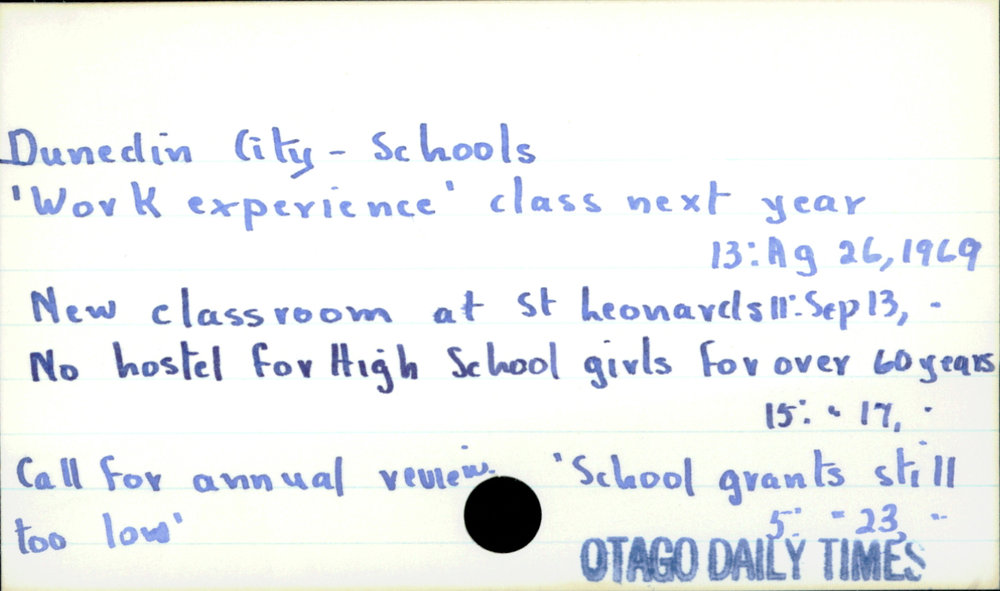 Dunedin City - Schools
'Work experience' class next year
13: Ag 26, 1969
New classroom at St Leonards 11: Sep 13, "
No hostel for High School girls for over 60 years
15: " 17, "
Call for annual review. 'School grants still
too low' 5: " 23, "
OTAGO DAILY TIMES